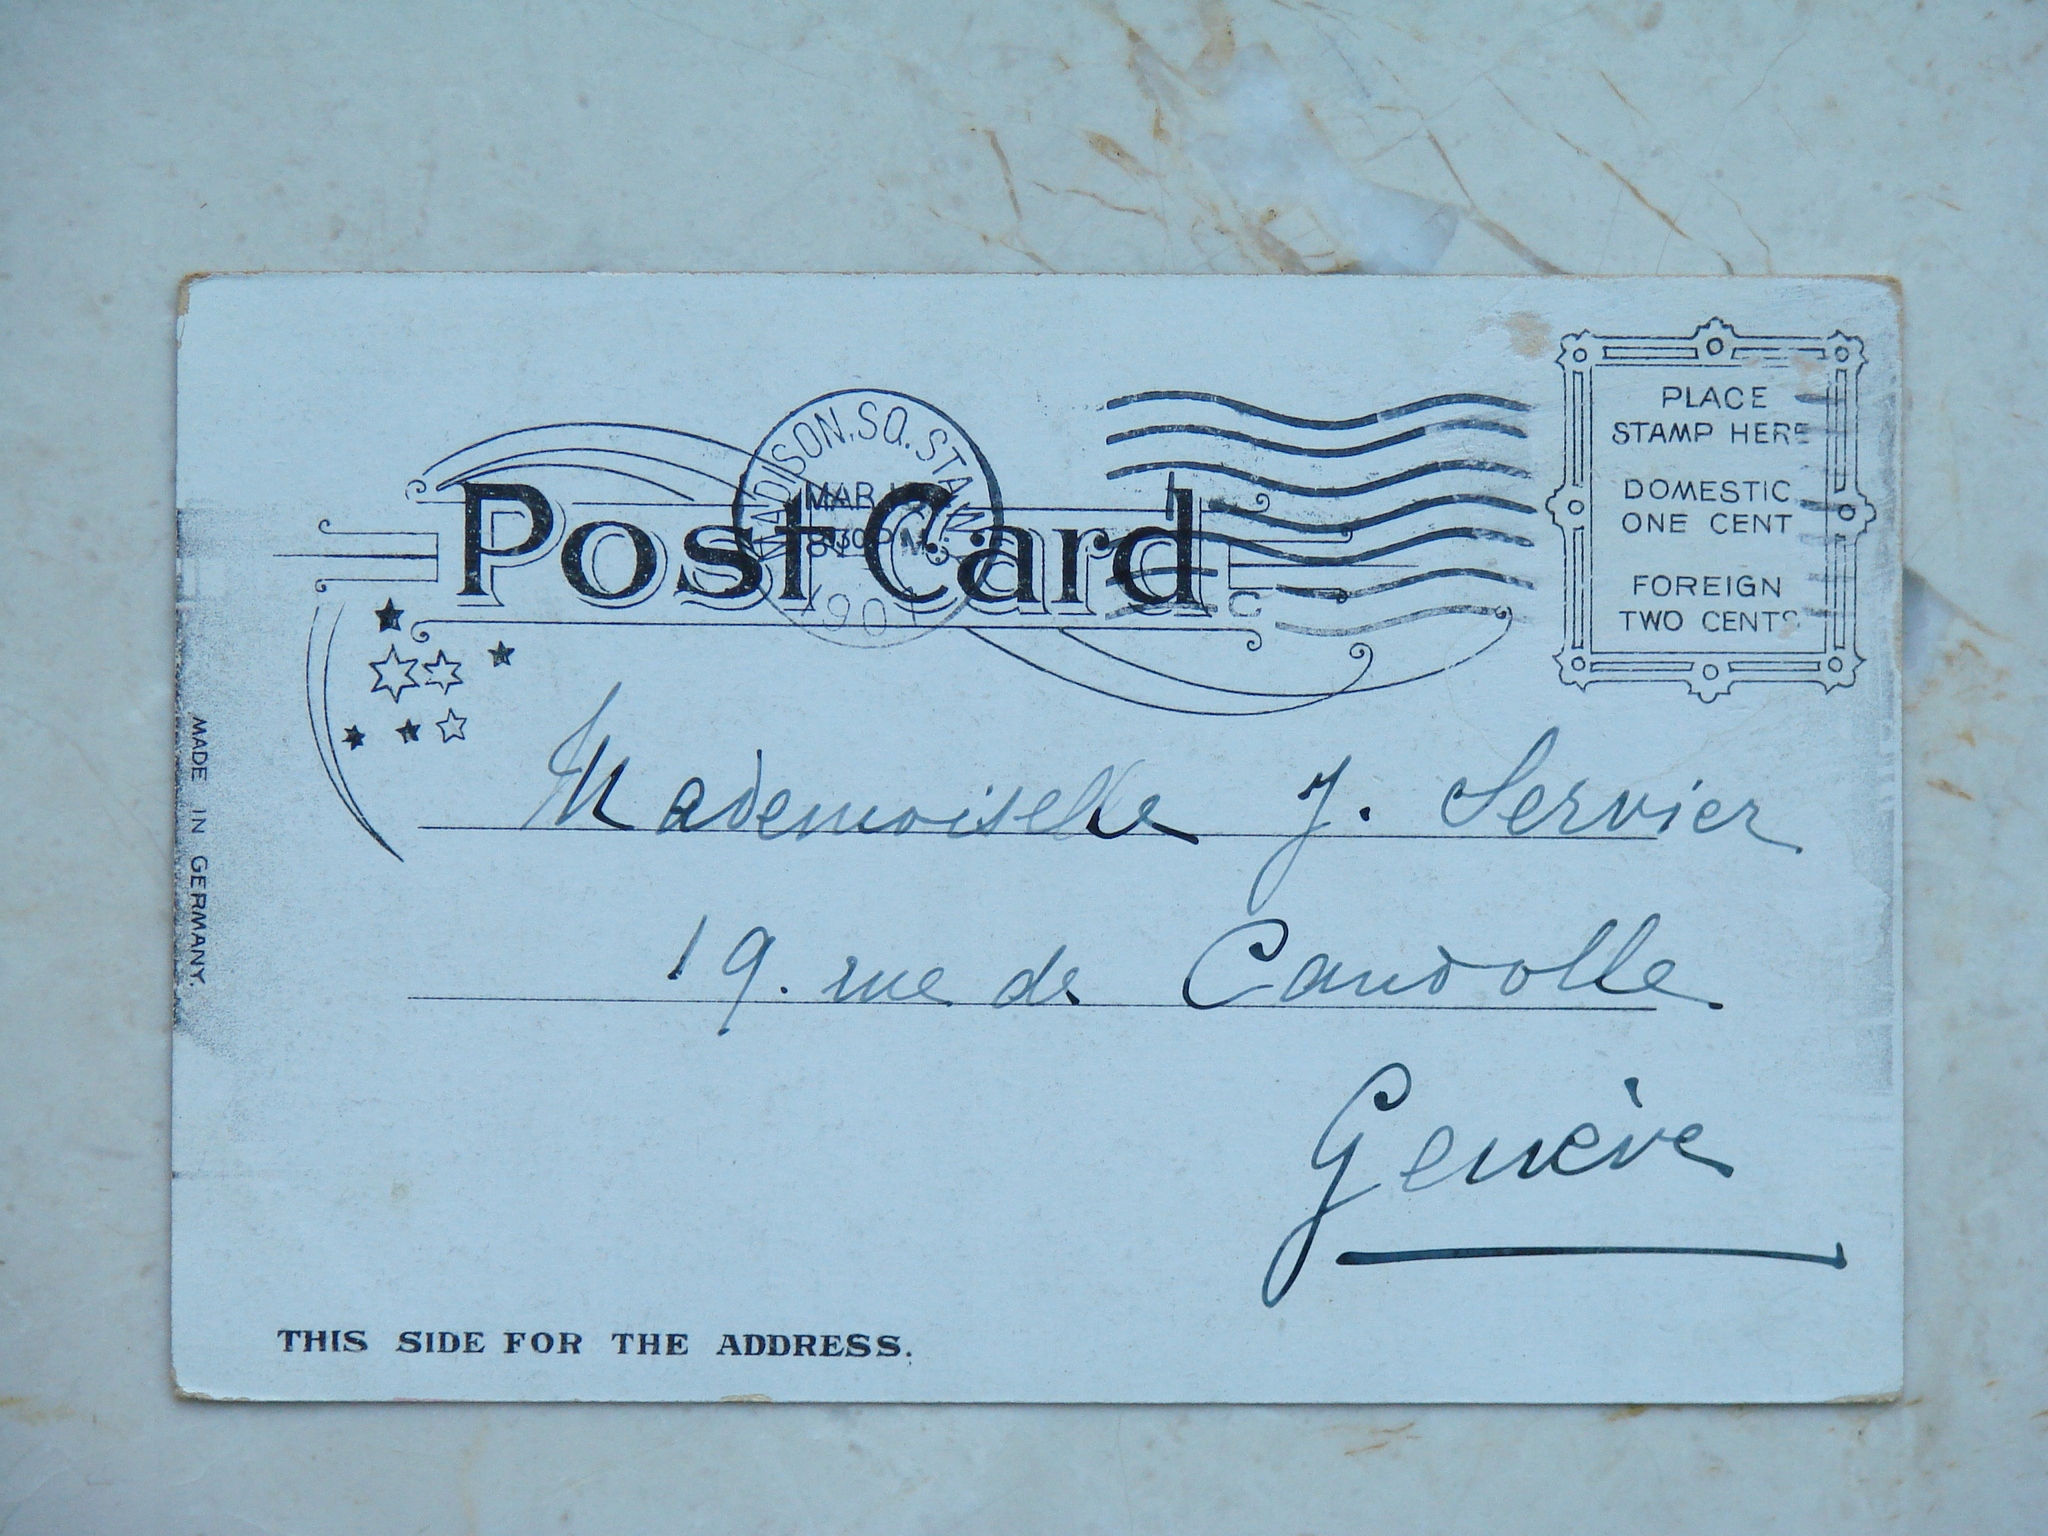 MADISON. SQ. STA. N.Y.
MAR
8 30 P M
1907
Post Card
PLACE
STAMP HERE
DOMESTIC
ONE CENT
FOREIGN
TWO CENTS
MADE IN GERMANY.
Mademoiselle J. Servier
19. rue de Candolle
Genève
THIS SIDE FOR THE ADDRESS.